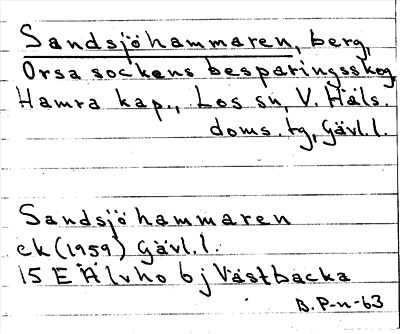 Sandsjöhammaren, berg,
Orsa sockens besparingsskog,
Hamra kap., Los sn, V. Häls.
doms. tg, Gävl. l.
Sandsjöhammaren
ek (1959) Gävl. l.
15 E Älvho 6 j Västbacka
B. P-n-63